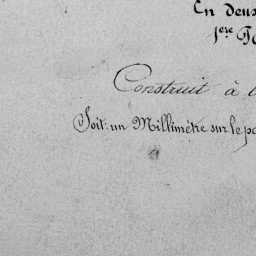 En deux
1ere
Construit à
Soit: un Millimètre sur le